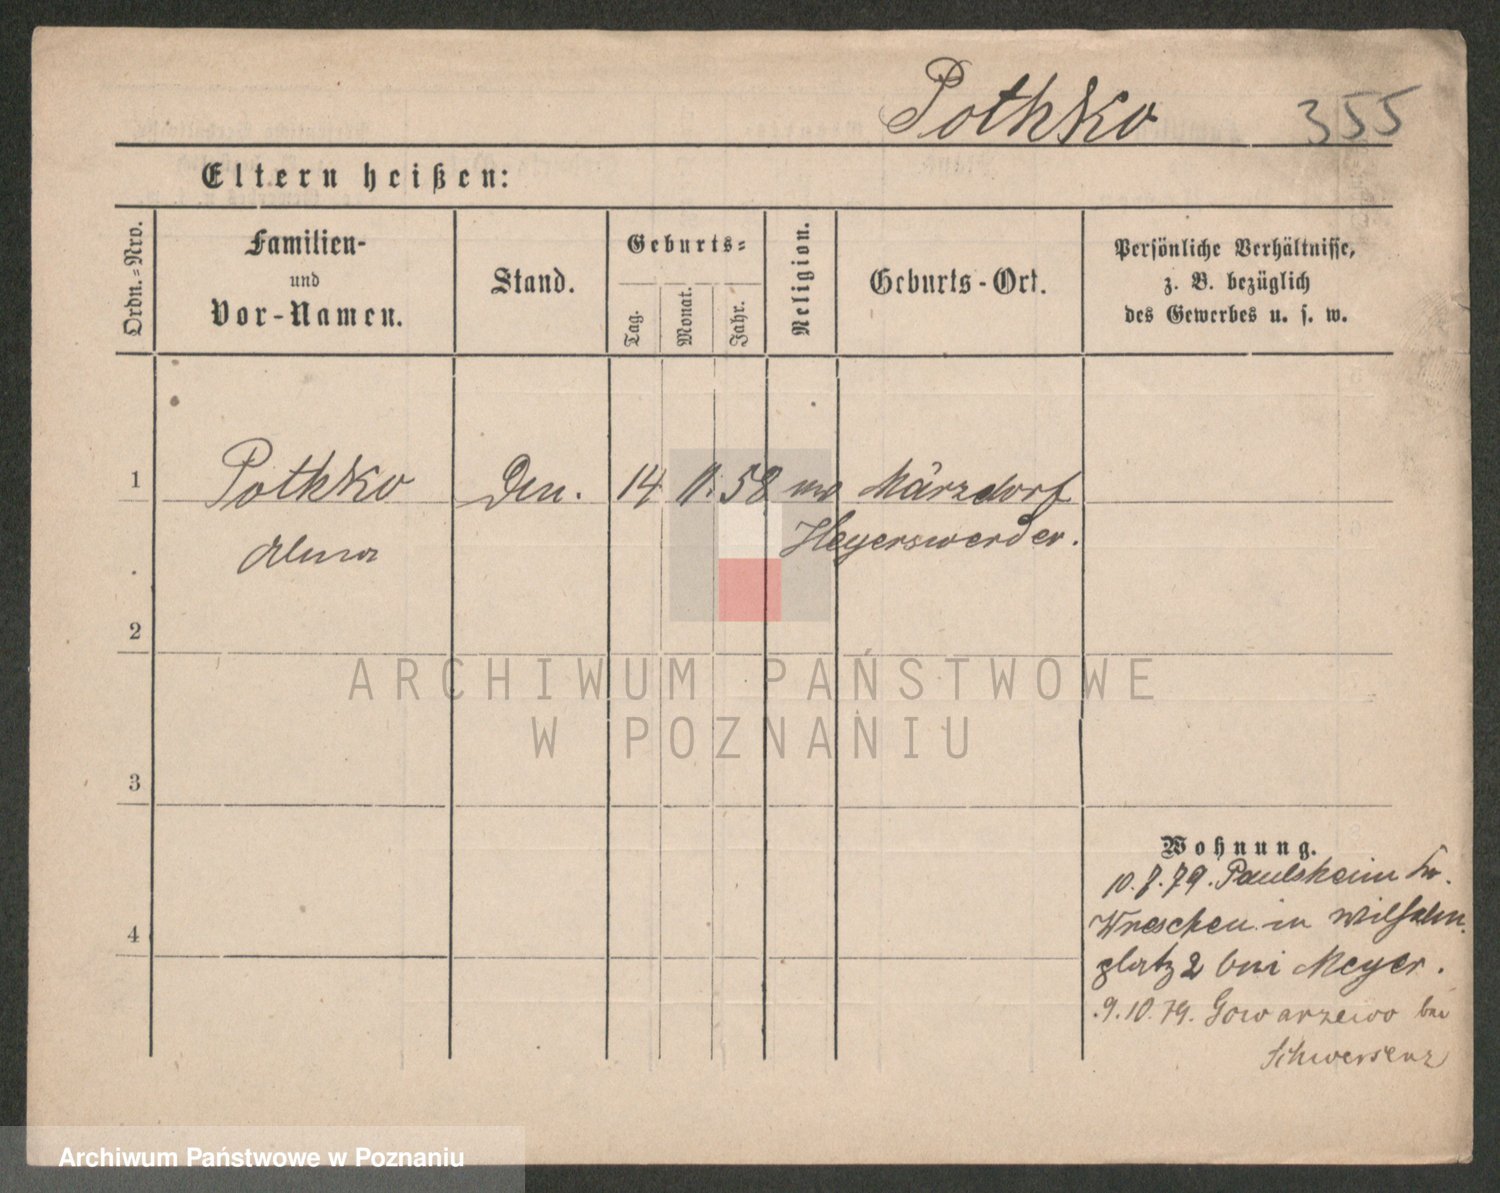 Pothko 355
Eltern heißen:
Ordn.=Nro.
Familien-
und
Vor-Namen.
Stand.
Geburts=
Tag.
Monat.
Jahr.
Religion.
Geburts-Ort.
Persönliche Verhältnisse,
z. B. bezüglich
des Gewerbes u. s. w.
1 Pothko 14 58 Märzdorf
Heyerswerder.
Alma
2
3
4
Wohnung.
10.7.79. Paulsheim
Wreschen in Wilhelm
platz 2 bei Meyer.
9.10.79. Gowarzewo bei
Schwersenz
ARCHIWUM PAŃSTWOWE
W POZNANIU
Archiwum Państwowe w Poznaniu